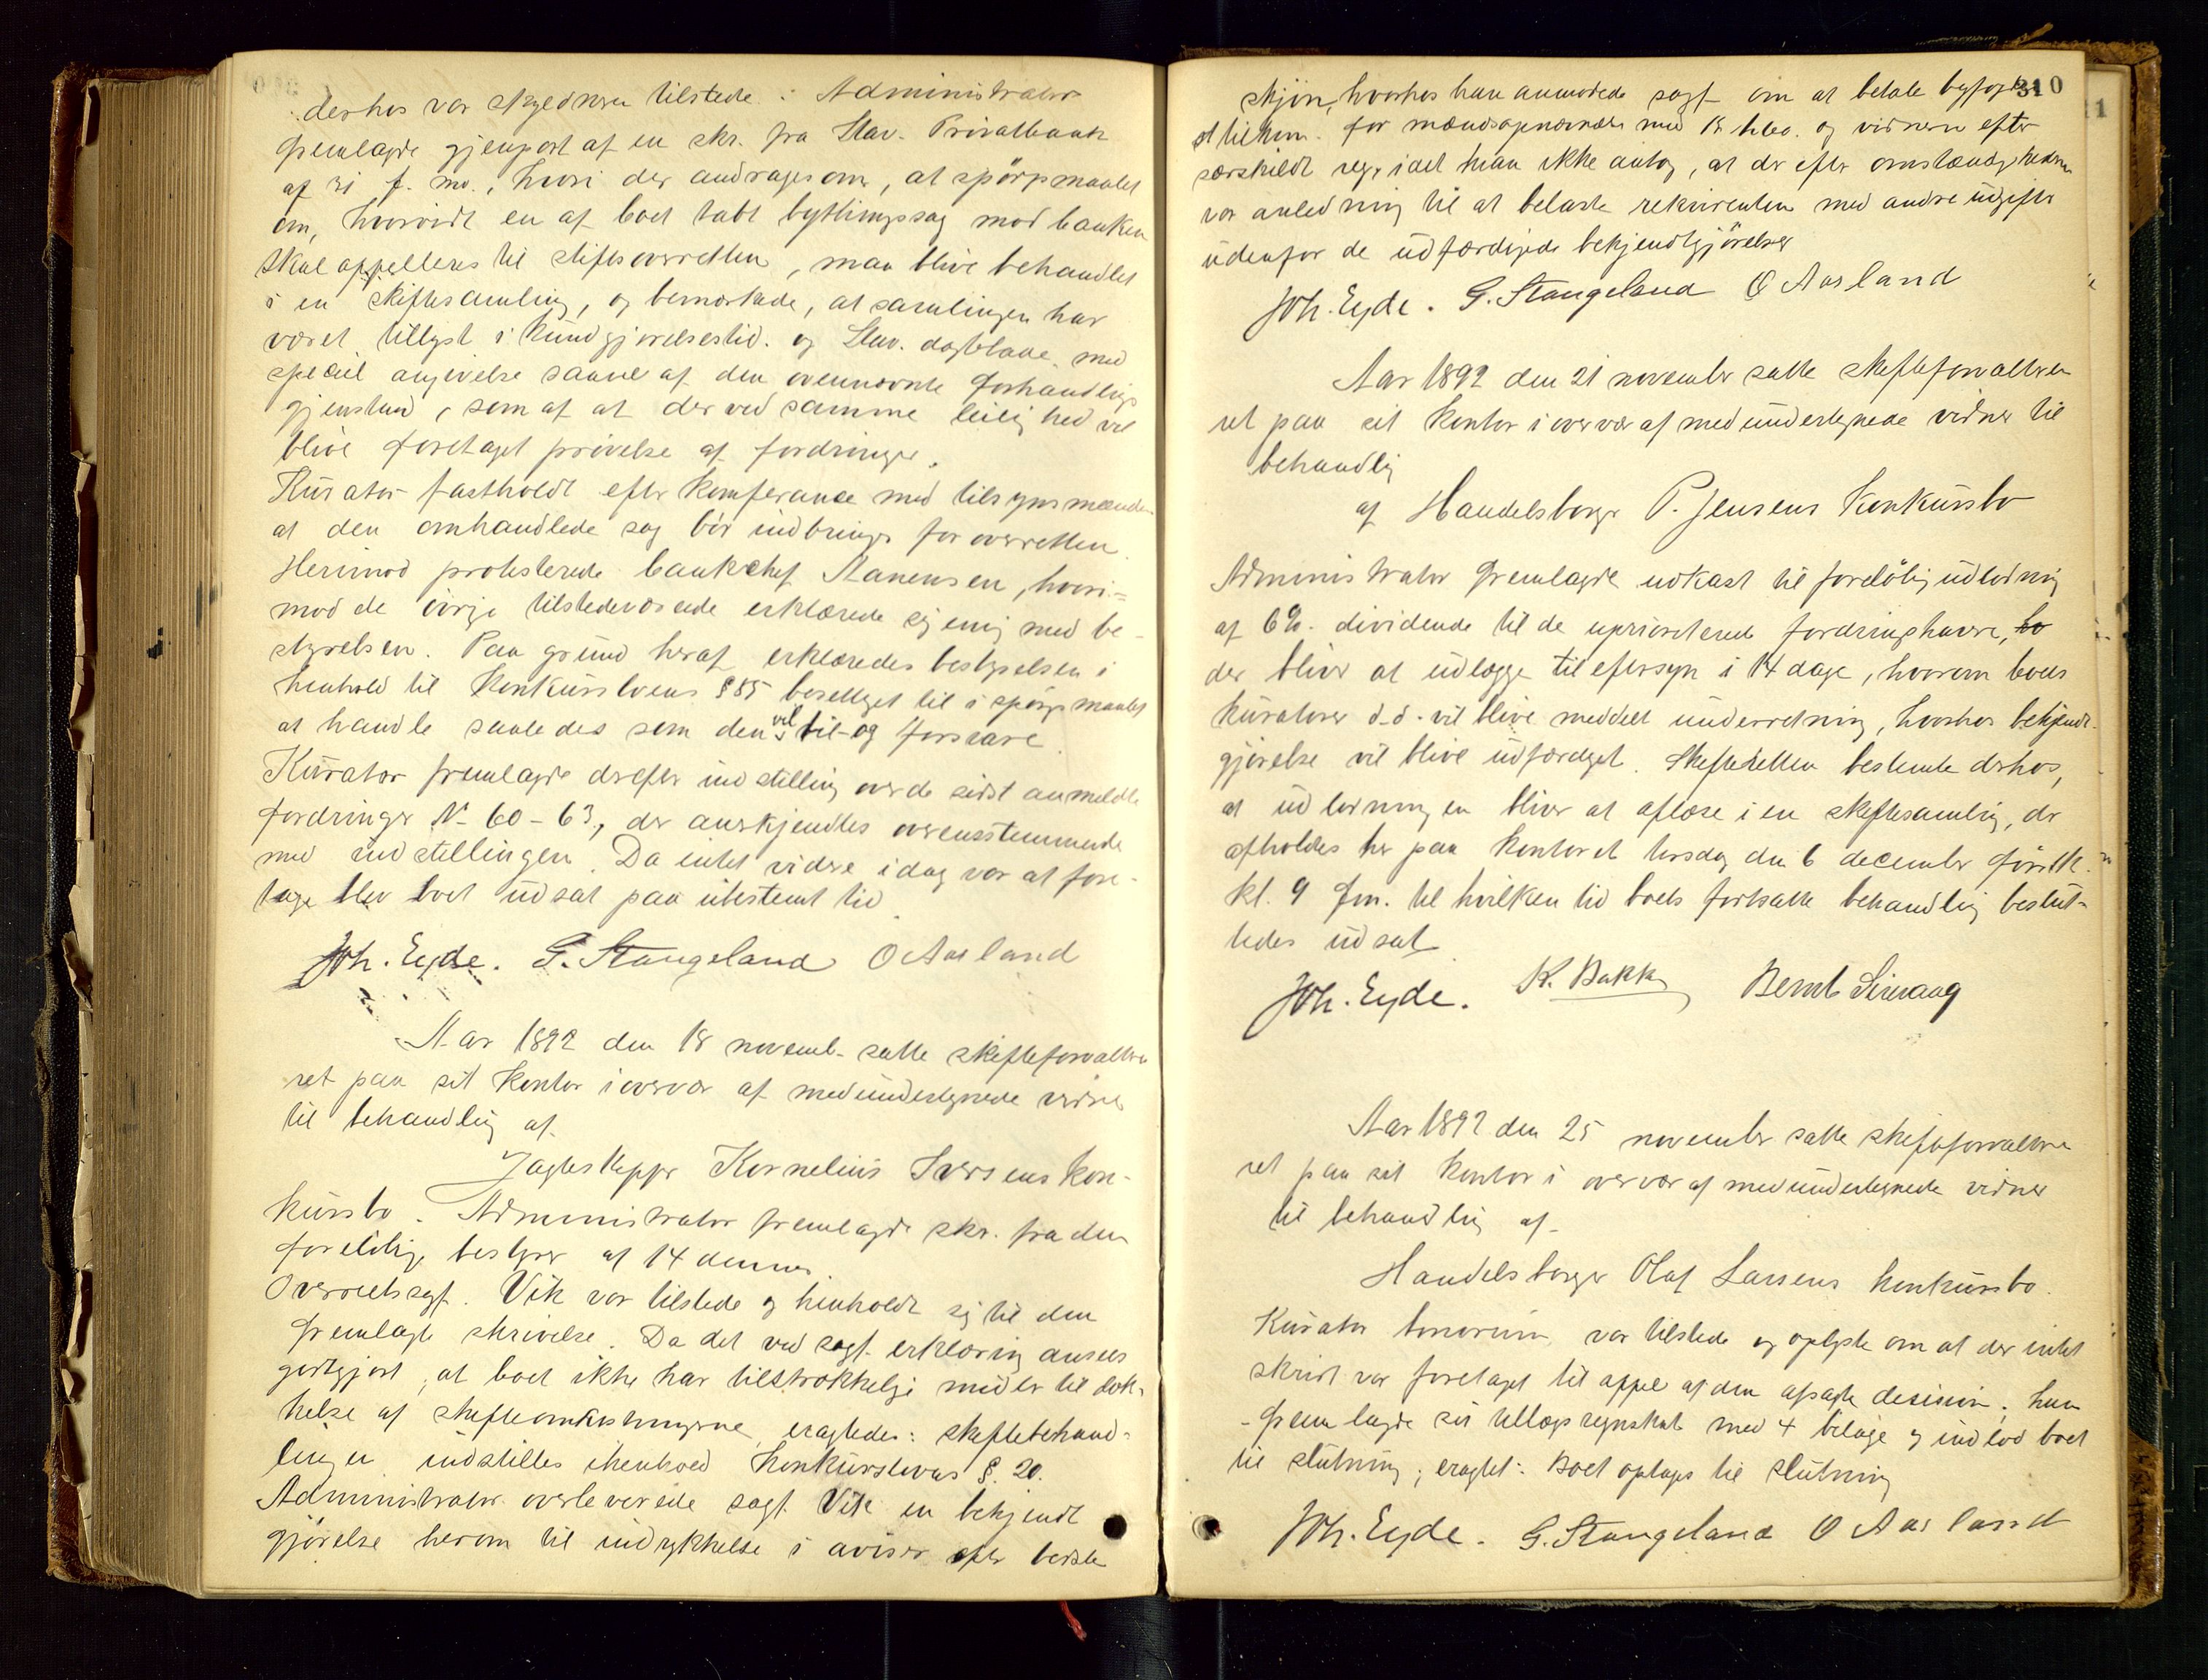 derhos var skyldneren tilstede. Administrator
fremlagde gjenpart af en skr. fra Stav. Privatbank
af 31 f. md., hvori der andrages om, at spørgsmaalet
om, hvorvidt en af boet tabt bytlingssag mod banken
skal appelleres til stiftsoverretten, maa blive behandlet
i en skiftesamling, og bemærkede, at samlingen har
været tillyst i Kundgjørelsestid. og Stav. dagblade med
speciel angivelse saavel af den ovennævnte forhandlings
gjenstand, som af at der ved samme leilighed vil
blive foretaget prøvelse af fordringer.
Kurator fastholdt efter konferance med tilsynsmænden
at den omhandlede sag bør indbringes for overretten.
Herimod protesterede bankchef Aanensen, hvori-
mod de øvrige tilstedeværende erklærede sig enig med be-
styrelsen. Paa grund heraf erklæredes bestyrelsen i
henhold til Konkurslovens § 85 beføiet til i spørgsmaalet
at handle saaledes som den vil til- og forsvare.
Kurator fremlagde derefter indstilling over de sidst anmeldte
fordringer No 60-63, der anerkjendtes overensstemmende
med indstillingen. Da intet videre idag var at fore-
tage blev boet udsat paa ubestemt tid.
Joh. Eyde. G. Stangeland O Aasland
Aar 1892 den 18 novemb. satte skifteforvalteren
ret paa sit kontor i overvær af medundertegnede vidner
til behandling af
Jagteskipper Kornelius Iversens kon-
kursbo. Administrator fremlagde skr. fra den
foreløbige bestyrer af 14 dennes.
Overretssagf. Vik var tilstede og henholdt sig til den
fremlagte skrivelse. Da det ved sagf. erklæring ansees
godtgjort, at boet ikke har tilstrækkelige midler til dæk-
kelse af skifteomkostningerne eragtedes: skiftebehand-
lingen indstilles ihenhold Konkurslovens § 20.
Administrator overleverede sagf. Vik en bekjendt
gjørelse herom til indrykkelse i aviser efter bedste
310
skjøn, hvorhos han anmodede sagf. om at betale byfogden
et tilkom. for mændsopnævnelse med 12 kr. og vidnerne efter
særskildt regn. idet han ikke antog, at der efter omstændighederne
var anledning til at belaste rekvirenten med andre udgifter
udenfor de udfærdigede bekjendtgjørelser
Joh. Eyde. G. Stangeland O Aasland
Aar 1892 den 21 november satte skifteforvalteren
ret paa sit kontor i overvær af medundertegnede vidner til
behandling
af Handelsborger P. Jensens Konkursbo
Administrator fremlagde udkast til foreløbig udlodning
af 6%. dividende til de uprioriterede fordringshavere,
der bliver at udlægge til eftersyn i 14 dage, hvorom boets
kuratorer d.d. vil blive meddelt underretning, hvorhos bekjendt-
gjørelse vil blive udfærdiget. Skifteretten bestemte derhos,
at udlodningen bliver at aflæse i en skiftesamling, der
afholdes her paa kontoret tirsdag den 6 december førstk.
kl. 9 fm. til hvilken tid boets fortsatte behandling beslut-
tedes udsat
Joh. Eyde. K. Bakke Bernt Sirevaag
Aar 1892 den 25 november satte skifteforvalteren
ret paa sit kontor i overvær af medundertegnede vidner
til behandling af
Handelsborger Olaf Larsens konkursbo.
Kurator bonorum var tilstede og oplyste om at der intet
skridt var foretaget til appel af den afsagte desision; han
fremlagde sit tillægsregnskab med 4 bilage og indlod boet
til slutning; eragtet: Boet optages til slutning
Joh. Eyde. G. Stangeland O Aasland